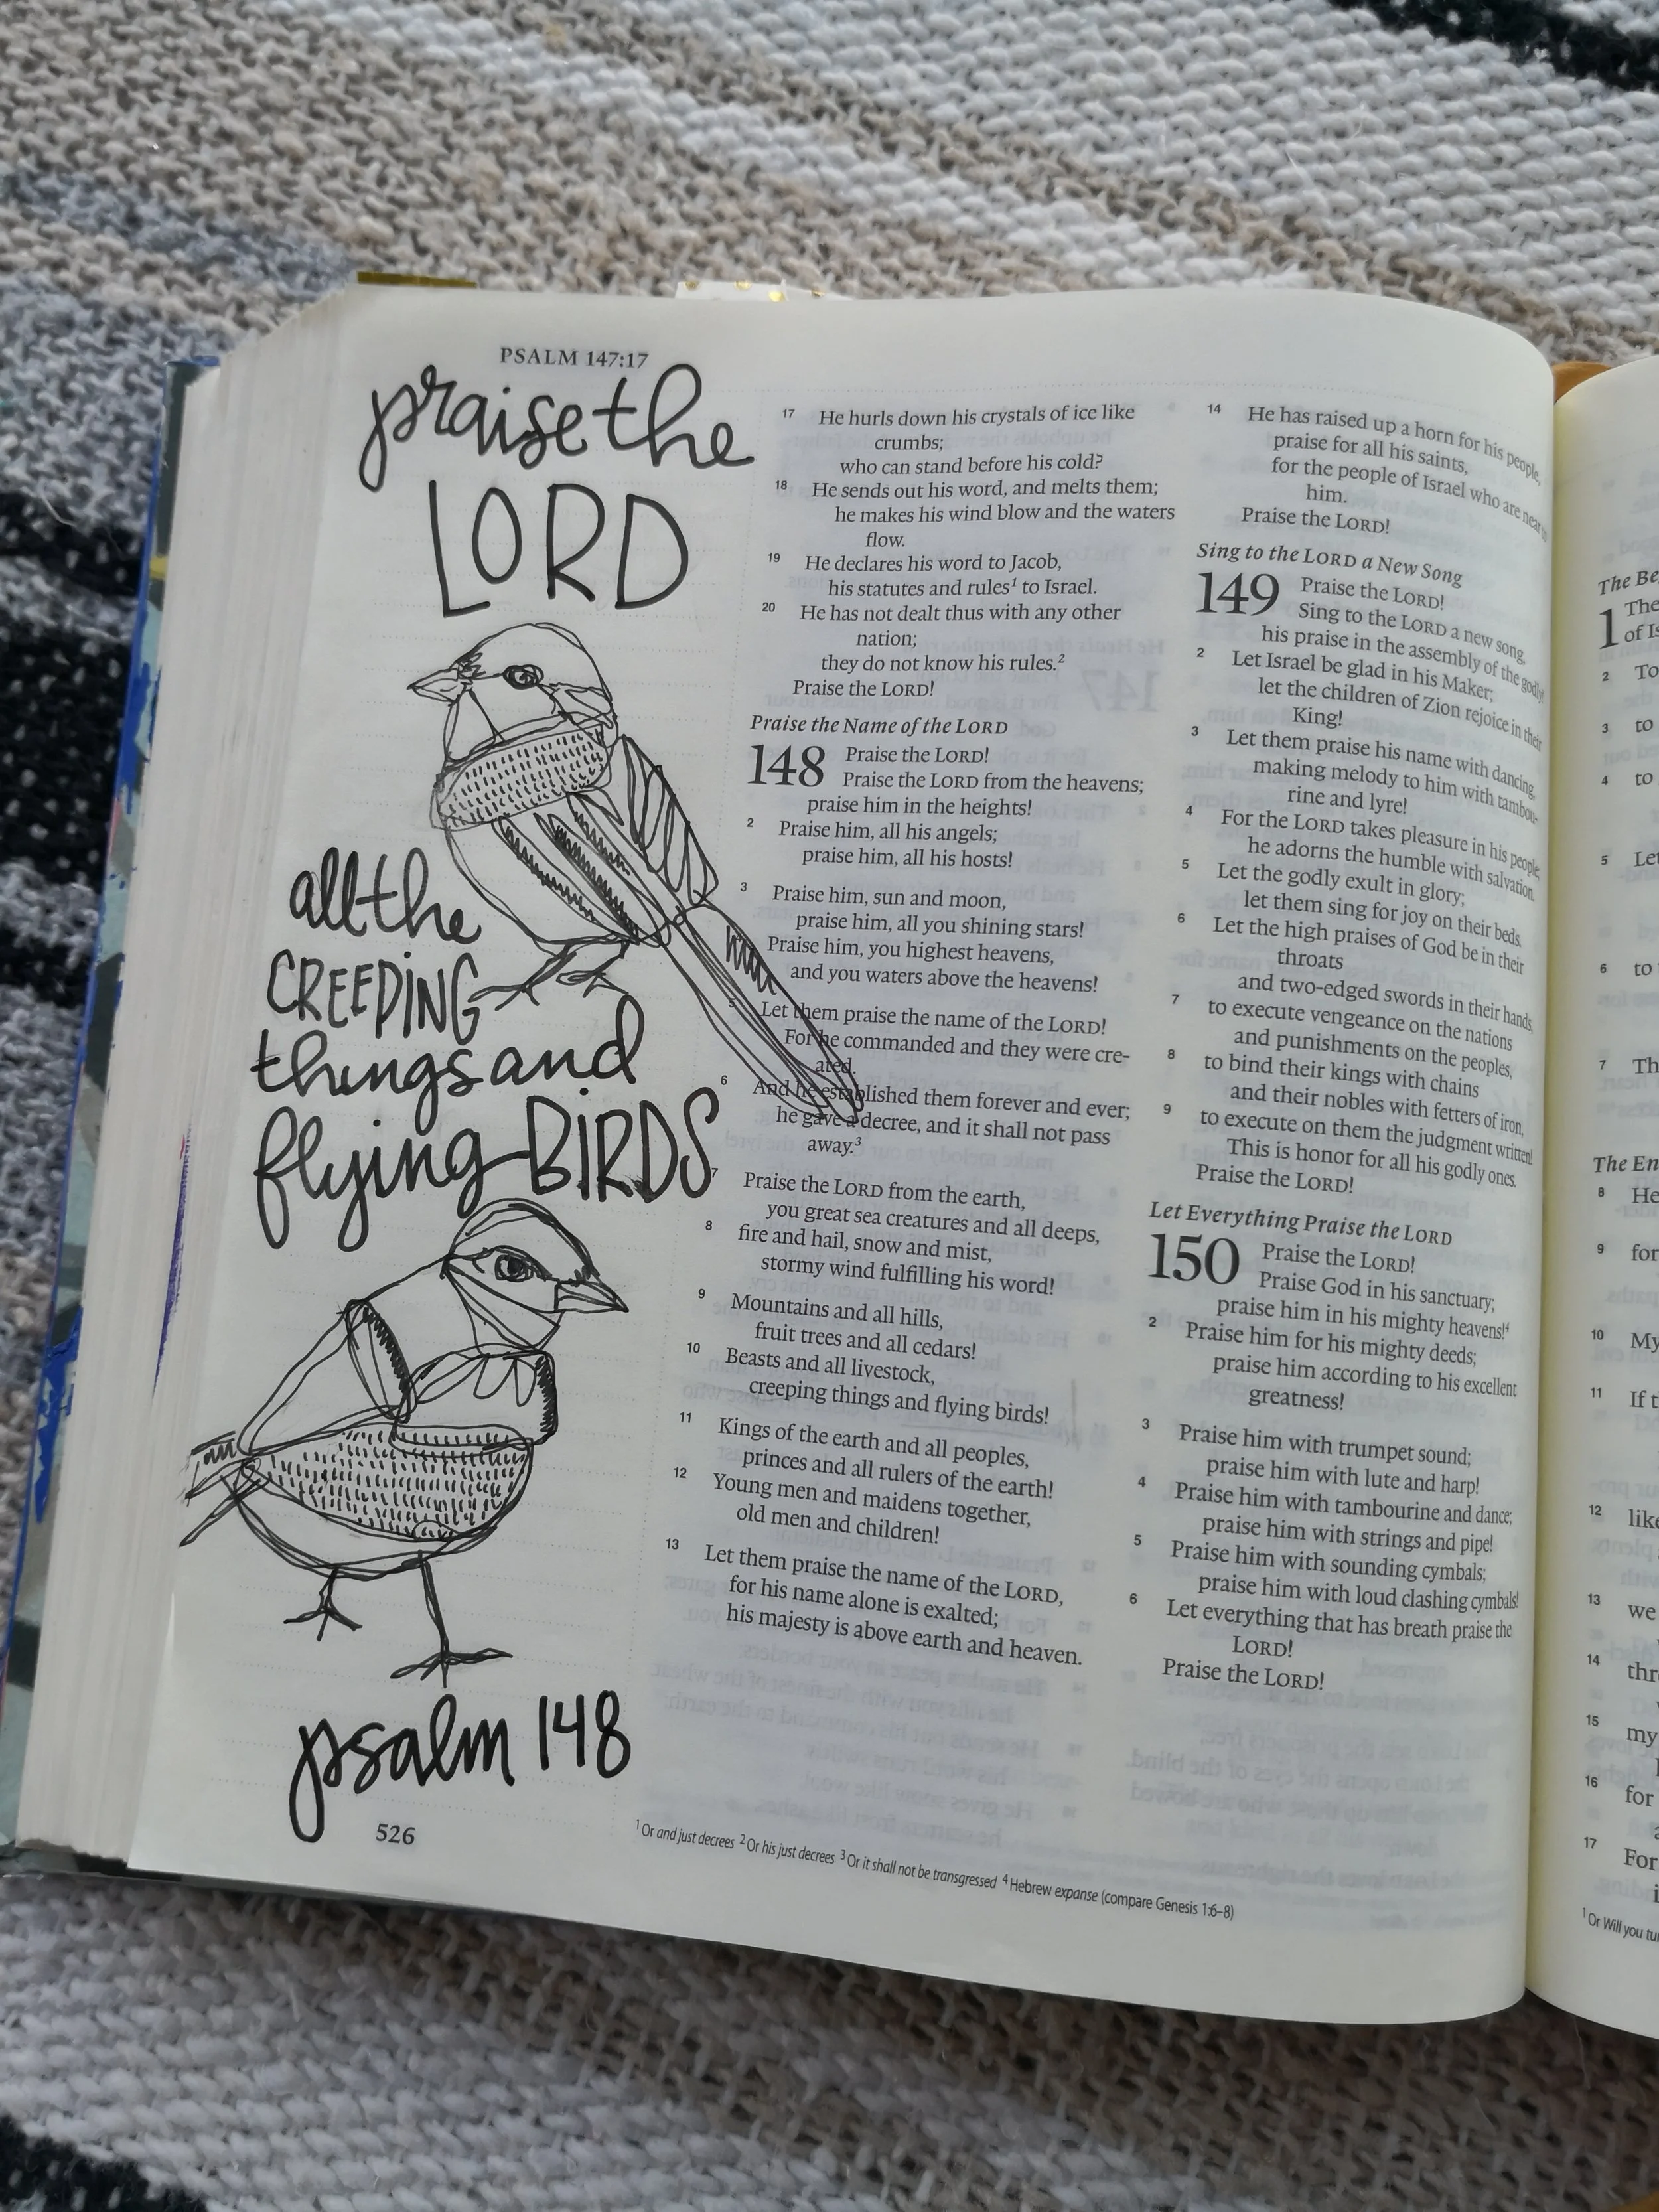 PSALM 147:17
praise the
LORD
all the
CREEPING
things and
flying BIRDS
psalm 148
526
17 He hurls down his crystals of ice like
crumbs;
who can stand before his cold?
18 He sends out his word, and melts them;
he makes his wind blow and the waters
flow.
19 He declares his word to Jacob,
his statutes and rules1 to Israel.
20 He has not dealt thus with any other
nation;
they do not know his rules.2
Praise the LORD!
Praise the Name of the LORD
148 Praise the LORD!
Praise the LORD from the heavens;
praise him in the heights!
2 Praise him, all his angels;
praise him, all his hosts!
3 Praise him, sun and moon,
praise him, all you shining stars!
Praise him, you highest heavens,
and you waters above the heavens!
5 Let them praise the name of the LORD!
For he commanded and they were cre-
ated.
6 And he established them forever and ever;
he gave a decree, and it shall not pass
away.3
7 Praise the LORD from the earth,
you great sea creatures and all deeps,
8 fire and hail, snow and mist,
stormy wind fulfilling his word!
9 Mountains and all hills,
fruit trees and all cedars!
10 Beasts and all livestock,
creeping things and flying birds!
11 Kings of the earth and all peoples,
princes and all rulers of the earth!
12 Young men and maidens together,
old men and children!
13 Let them praise the name of the LORD,
for his name alone is exalted;
his majesty is above earth and heaven.
14 He has raised up a horn for his people,
praise for all his saints,
for the people of Israel who are near to
him.
Praise the LORD!
Sing to the LORD a New Song
149 Praise the LORD!
Sing to the LORD a new song,
his praise in the assembly of the godly!
2 Let Israel be glad in his Maker;
let the children of Zion rejoice in their
King!
3 Let them praise his name with dancing,
making melody to him with tambou-
rine and lyre!
4 For the LORD takes pleasure in his people;
he adorns the humble with salvation.
5 Let the godly exult in glory;
let them sing for joy on their beds.
6 Let the high praises of God be in their
throats
and two-edged swords in their hands,
7 to execute vengeance on the nations
and punishments on the peoples,
8 to bind their kings with chains
and their nobles with fetters of iron,
9 to execute on them the judgment written!
This is honor for all his godly ones.
Praise the LORD!
Let Everything Praise the LORD
150 Praise the LORD!
Praise God in his sanctuary;
praise him in his mighty heavens!4
2 Praise him for his mighty deeds;
praise him according to his excellent
greatness!
3 Praise him with trumpet sound;
praise him with lute and harp!
4 Praise him with tambourine and dance;
praise him with strings and pipe!
5 Praise him with sounding cymbals;
praise him with loud clashing cymbals!
6 Let everything that has breath praise the
LORD!
Praise the LORD!
1 Or and just decrees 2 Or his just decrees 3 Or it shall not be transgressed 4 Hebrew expanse (compare Genesis 1:6–8)
The
1 The
of
2 To
3 to
4 to
5
6 to
7
The
8 He
9 for
10 My
11 If
12 like
13 we
14
15 my
16 for
17 For
1 Or Will you